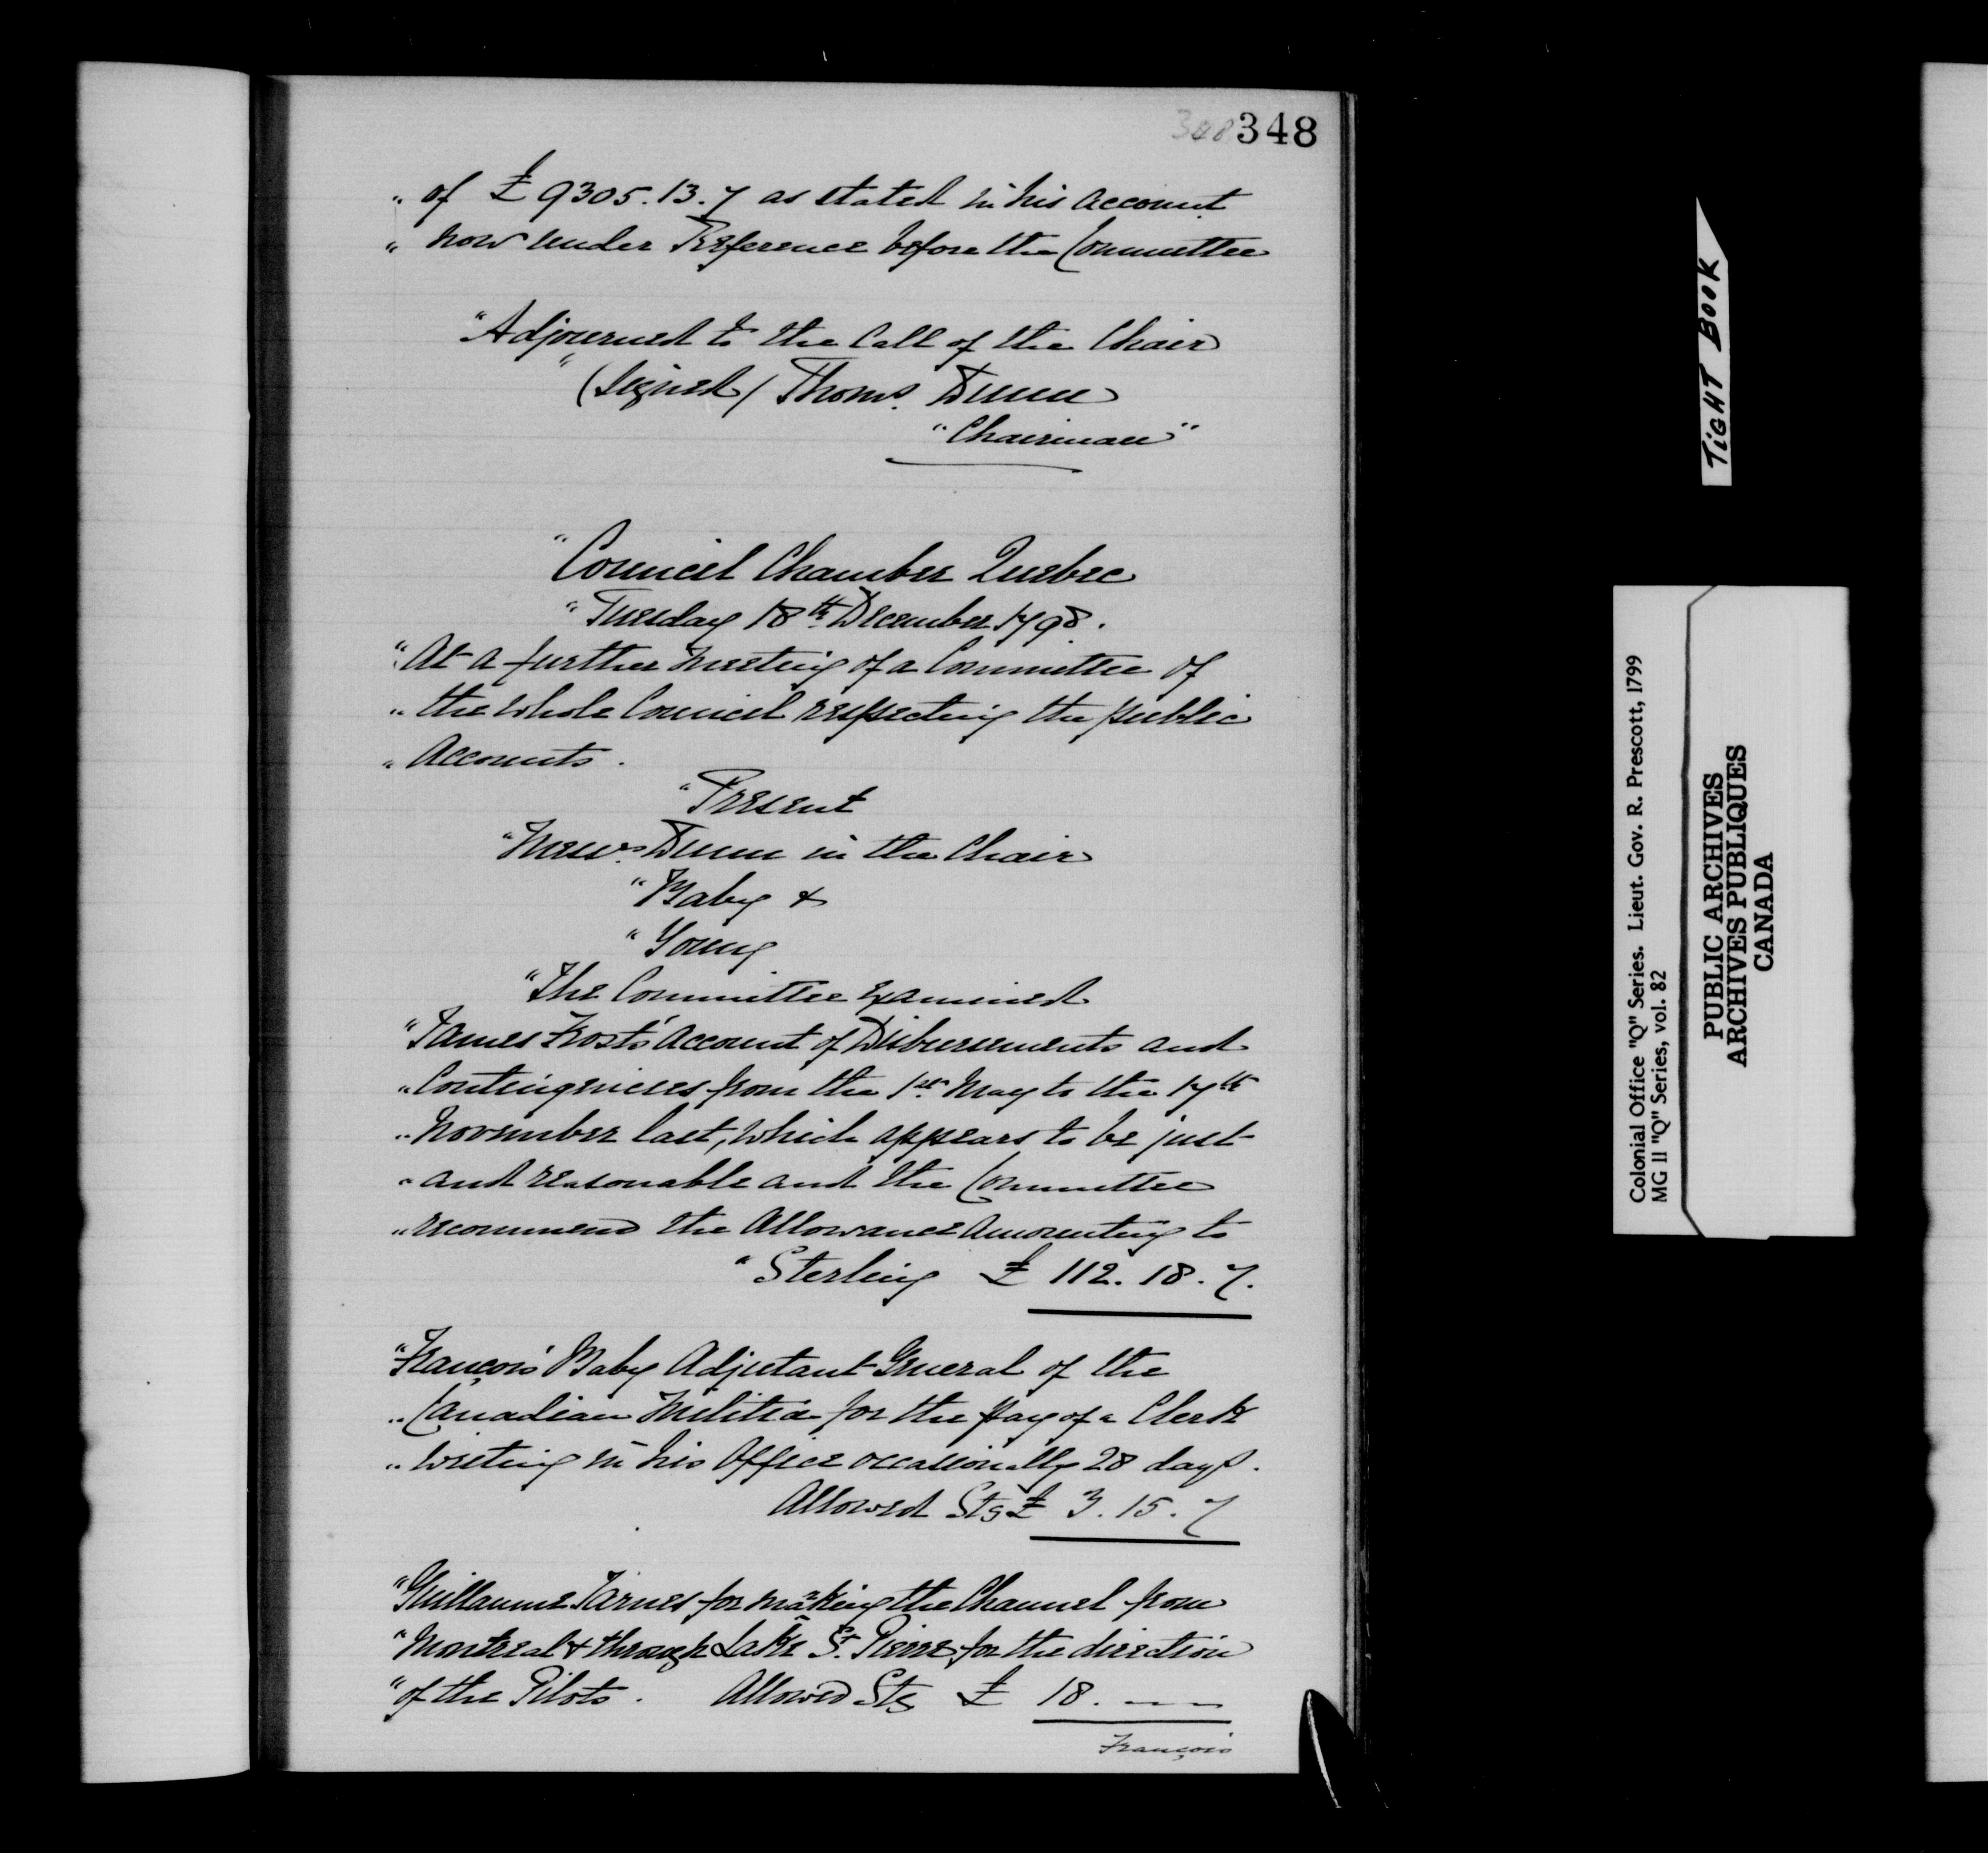 348 348
" of £ 9305.13.7 as stated in his Account
" now under Reference before the Committee
"Adjourned to the Call of the Chair
" (Signed) Thoms. Dunn
"Chairman"
"Council Chamber Quebec
"Tuesday 18th December 1798.
"At a further meeting of a Committee of
" the whole Council respecting the public
" Accounts.
"Present
"Messrs. Dunn in the Chair
"Baby &
"Young
"The Committee Examined
"James Frost's Account of Disbursements and
" Contingencies from the 1st May to the 17th
" November last, which appears to be just
" and reasonable and the Committee
" recommend the Allowance Amounting to
" Sterling £ 112. 18. 7.
"François Baby Adjutant General of the
" Canadian Militia for the pay of a Clerk
" writing in his Office occasionally 28 days.
Allowed Stg £ 3. 15. 7
"Guillaume Farnes for making the Channel from
"Montreal & through Lake St. Pierre for the direction
"of the Pilots. Allowed Stg £ 18. — —
François
TIGHT BOOK
Colonial Office "Q" Series. Lieut. Gov. R. Prescott, 1799
MG 11 "Q" Series, vol. 82
PUBLIC ARCHIVES
ARCHIVES PUBLIQUES
CANADA